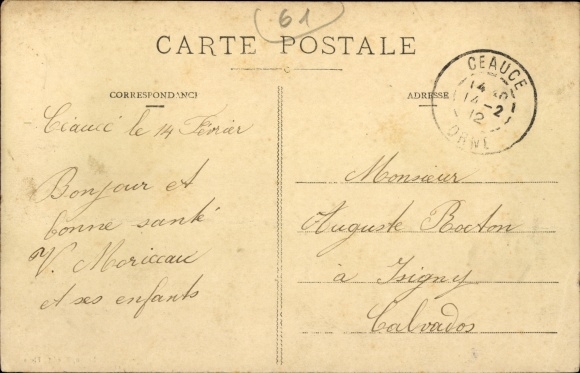 61
CARTE POSTALE
CORRESPONDANCE
Ceaucé le 14 Février
Bonjour et
bonne santé
V. Moriceau
et ses enfants
ADRESSE
CEAUCE
14
14-2
12
ORNE
Monsieur
Auguste
à Isigny
Calvados